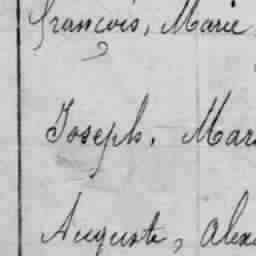 françois, Marie
Joseph, Mar
Auguste, alex